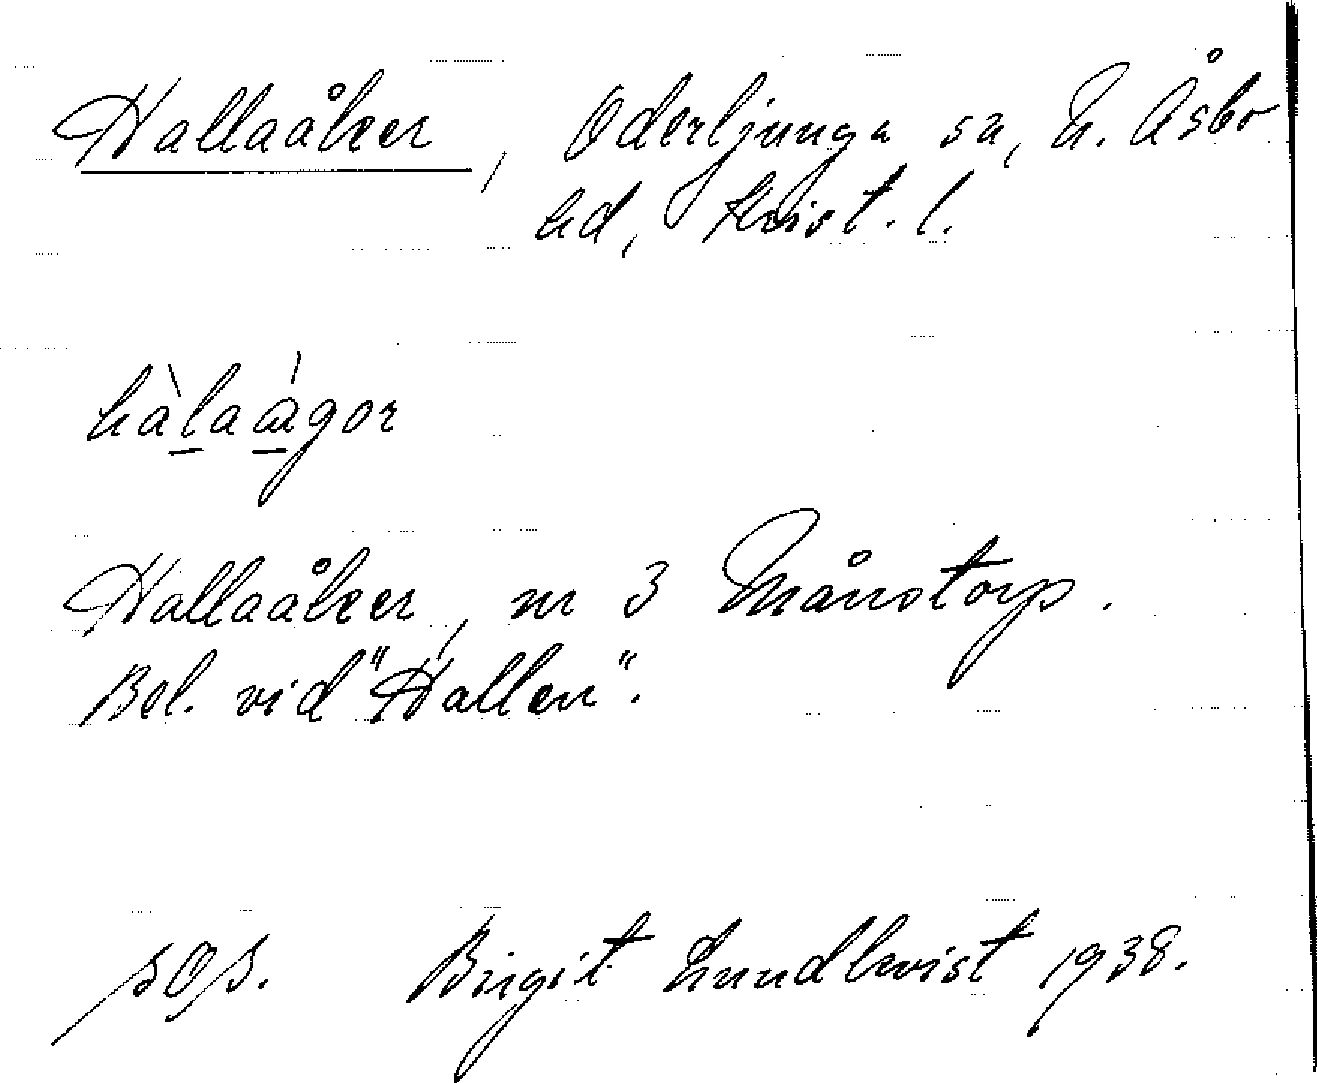 Hallaåker, Oderljunga sn, N. Åsbo
hd, Krist. l.
hàlaágor
Hallaåker, nr 3 Månstorp.
Bel. vid "Hallen".
Birgit Lundkvist 1938.